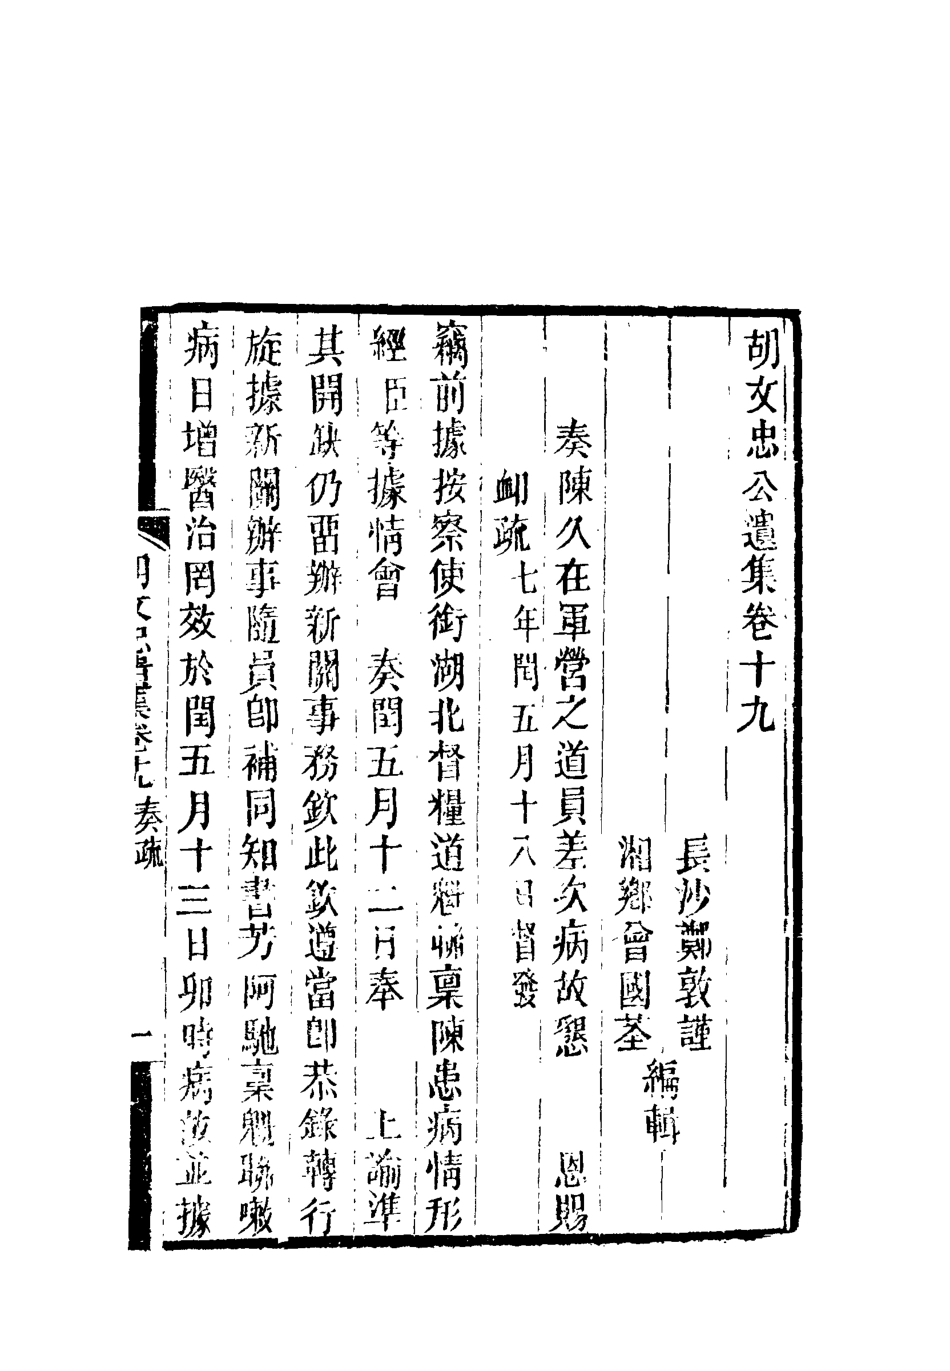 胡文忠公遺集卷十九
長沙鄭敦謹
湘鄉曾國荃
編輯
奏陳久在軍營之道員差次病故懇 恩賜
卹疏七年閏五月十八日督發
竊前據按察使銜湖北督糧道魁聯稟陳患病情形
經臣等據情會 奏閏五月十二日奉 上諭準
其開缺仍畱辦新關事務欽此欽遵當卽恭錄轉行
旋據新關辦事隨員卽補同知書芳阿馳稟魁聯嗽
病日增醫治罔效於閏五月十三日卯時病故並據
胡文忠遺集卷十九 奏疏
一